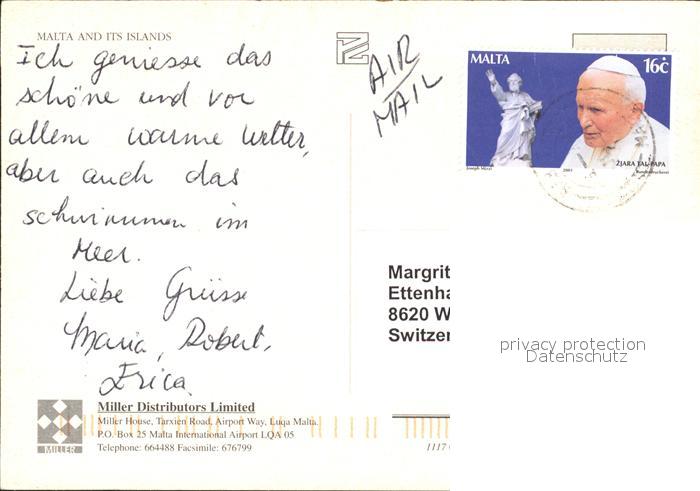 MALTA AND ITS ISLANDS
Ich geniesse das
schöne und vor
allem warme Wetter,
aber auch das
schwimmen im
Meer.
Liebe Grüsse
Maria, Robert,
Erica
AIR
MAIL
MALTA 16c
Joseph Mizzi 2001
ŻJARA TAL-PAPA
Margrit
Ettenha
8620 W
Switzer
privacy protection
Datenschutz
MILLER
Miller Distributors Limited
Miller House, Tarxien Road, Airport Way, Luqa Malta.
P.O. Box 25 Malta International Airport LQA 05
Telephone: 664488 Facsimile: 676799
1117